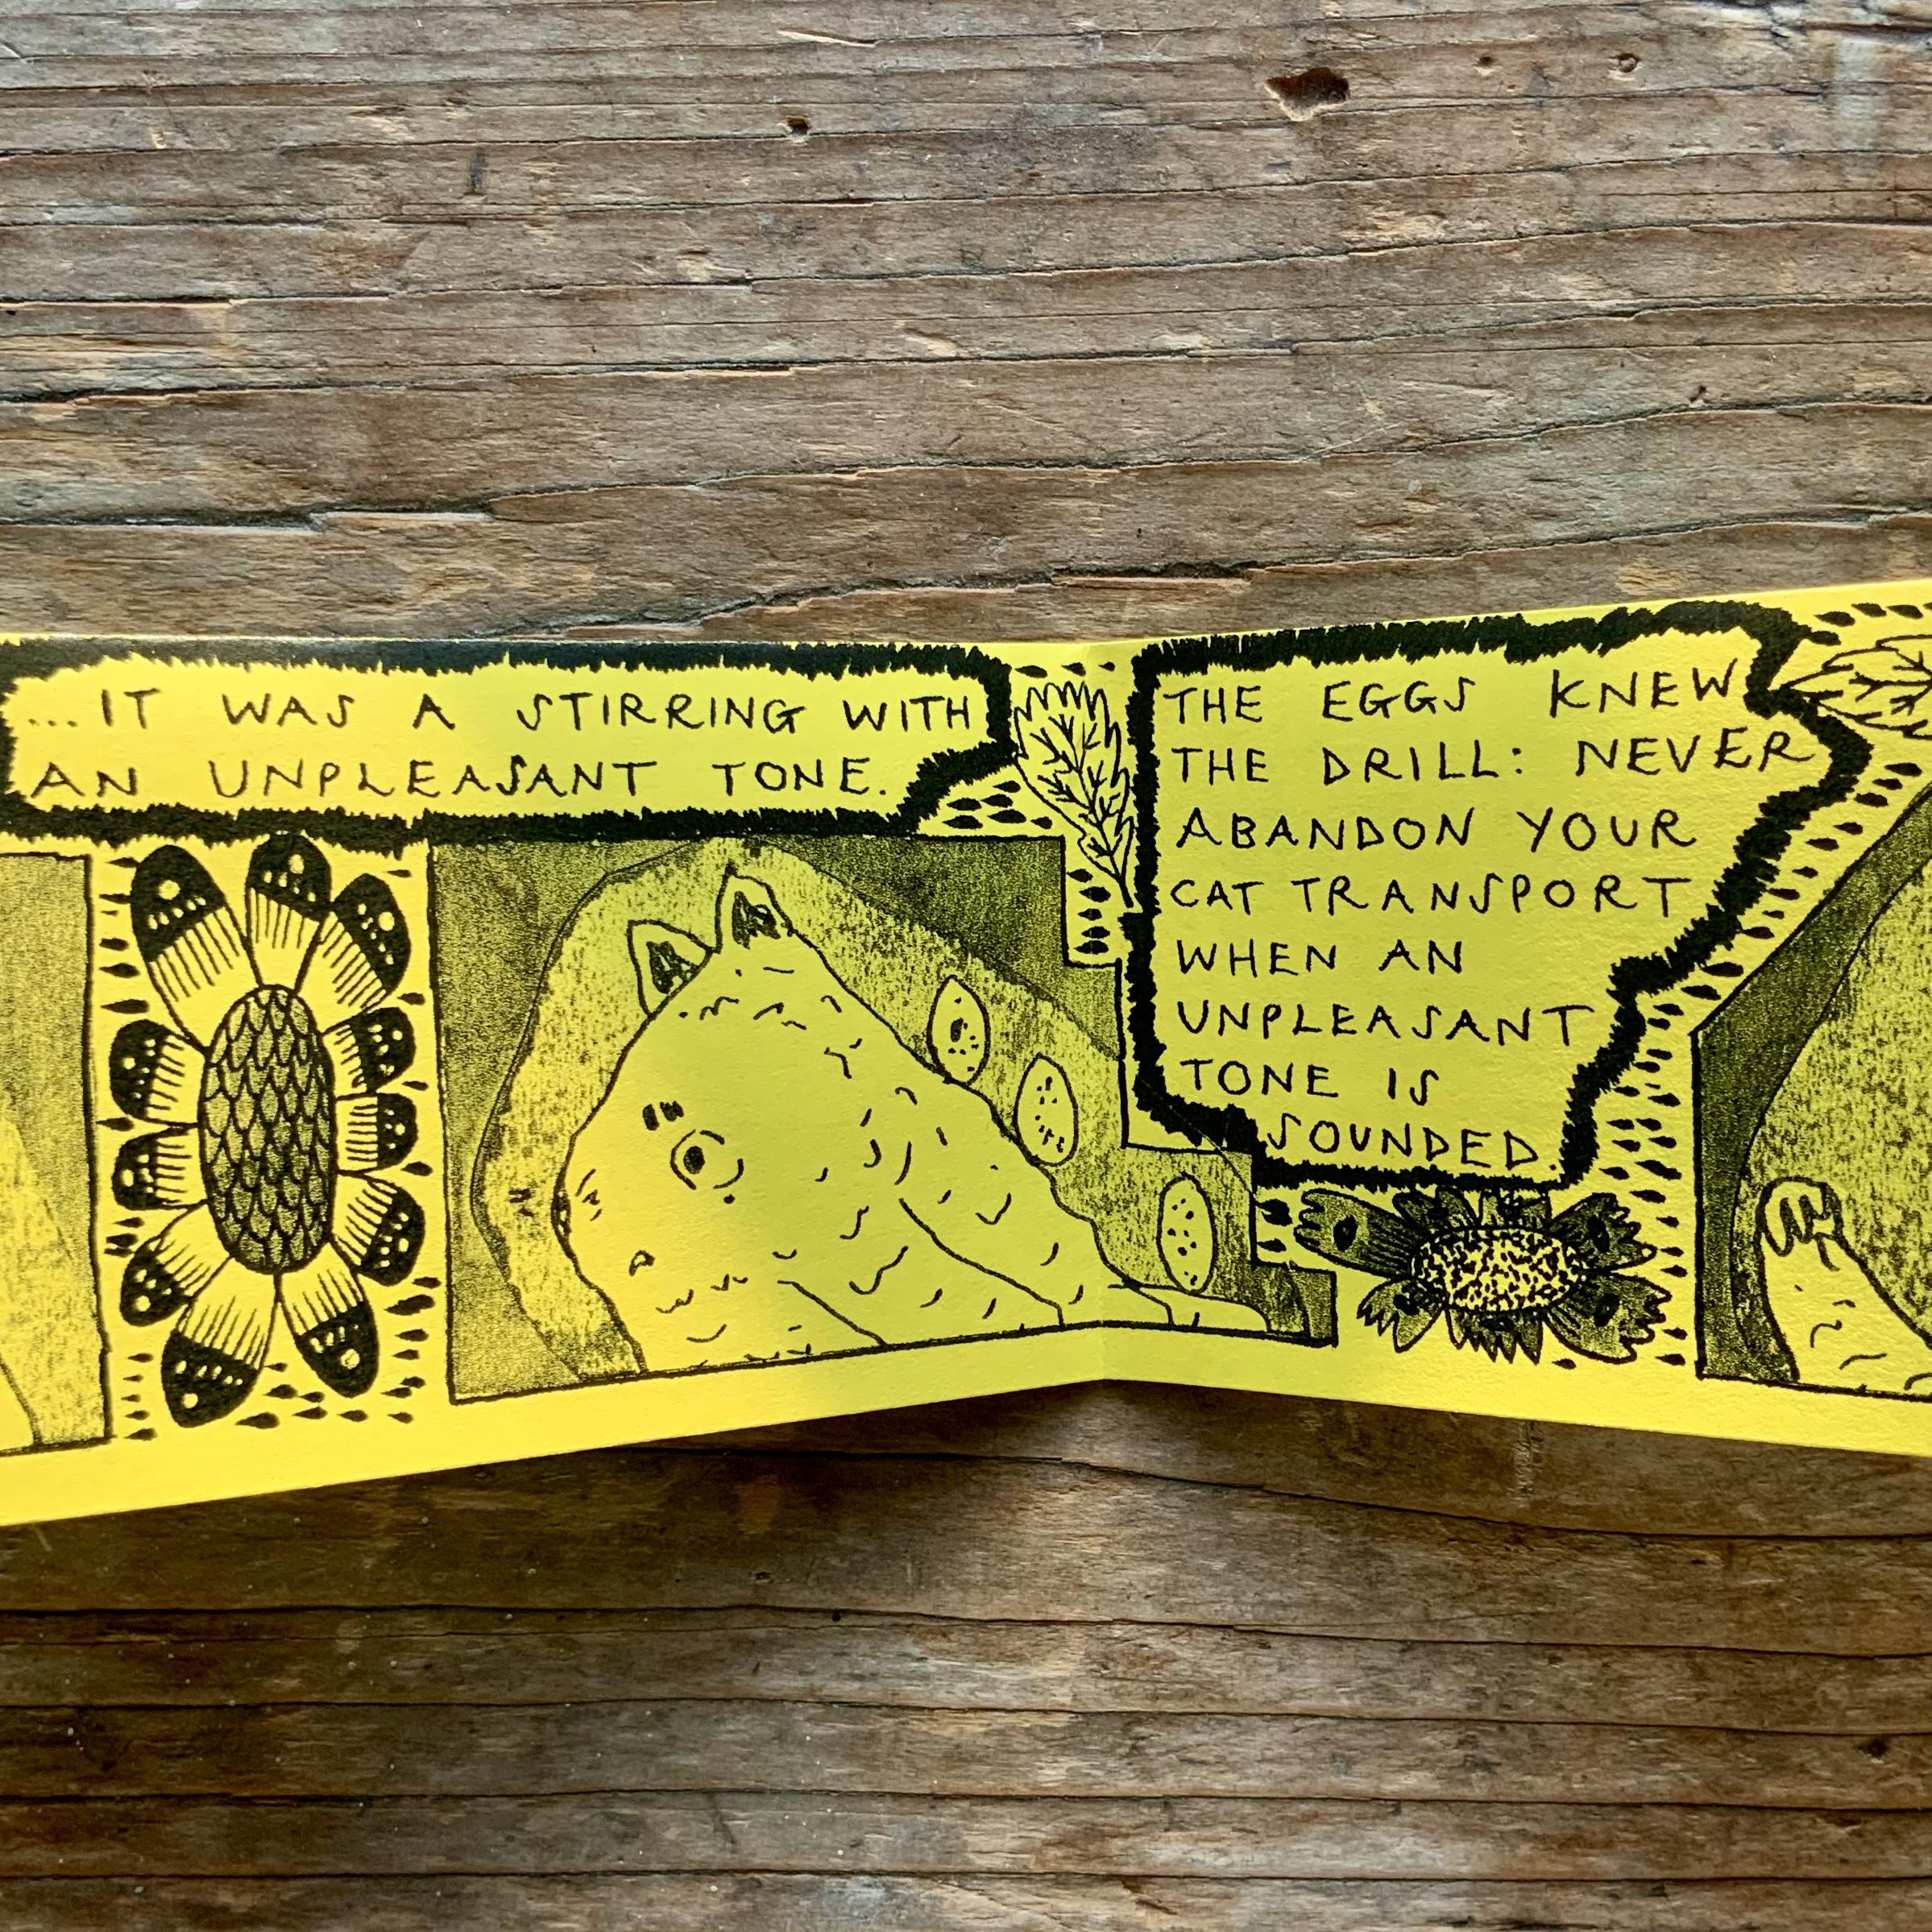 ...IT WAS A STIRRING WITH
AN UNPLEASANT TONE.
THE EGGS KNEW
THE DRILL: NEVER
ABANDON YOUR
CAT TRANSPORT
WHEN AN
UNPLEASANT
TONE IS
SOUNDED.